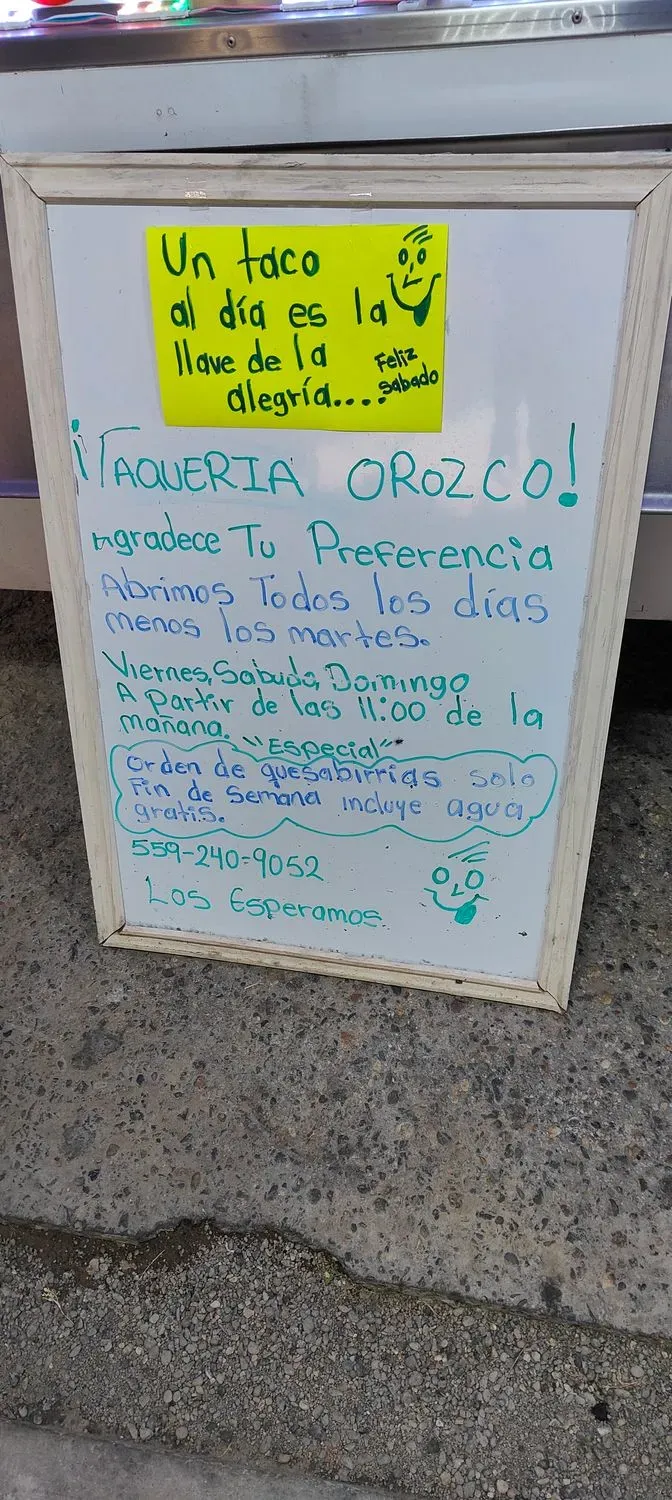 Un taco
al día es la
llave de la
alegría....
Feliz
sabado
¡TAQUERIA OROZCO!
Agradece Tu Preferencia
Abrimos Todos los días
menos los martes.
Viernes, Sabudo, Domingo
A partir de las 11:00 de la
mañana. "Especial"
orden de quesabirrias solo
Fin de semana incluye agua
gratis.
559-240-9052
Los Esperamos